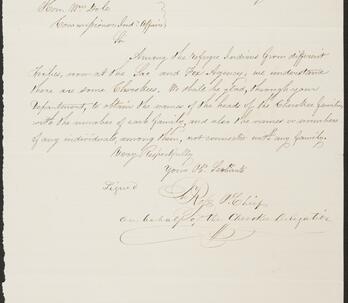 Hon. Wm Dole
Commissioner Ind. Affairs
Sir
Among the refugee Indians from different
Tribes, now at the Sac and Fox Agency, we understand
there are some Cherokees. We shall be glad, through your
Department, to obtain the names of the heads of the Cherokee families
with the number of each family, and also the names or numbers
of any individuals among them, not connected with any family.
Very Respectfully
Your Ob. Servants
Signed
on behalf of the Cherokee Delegation